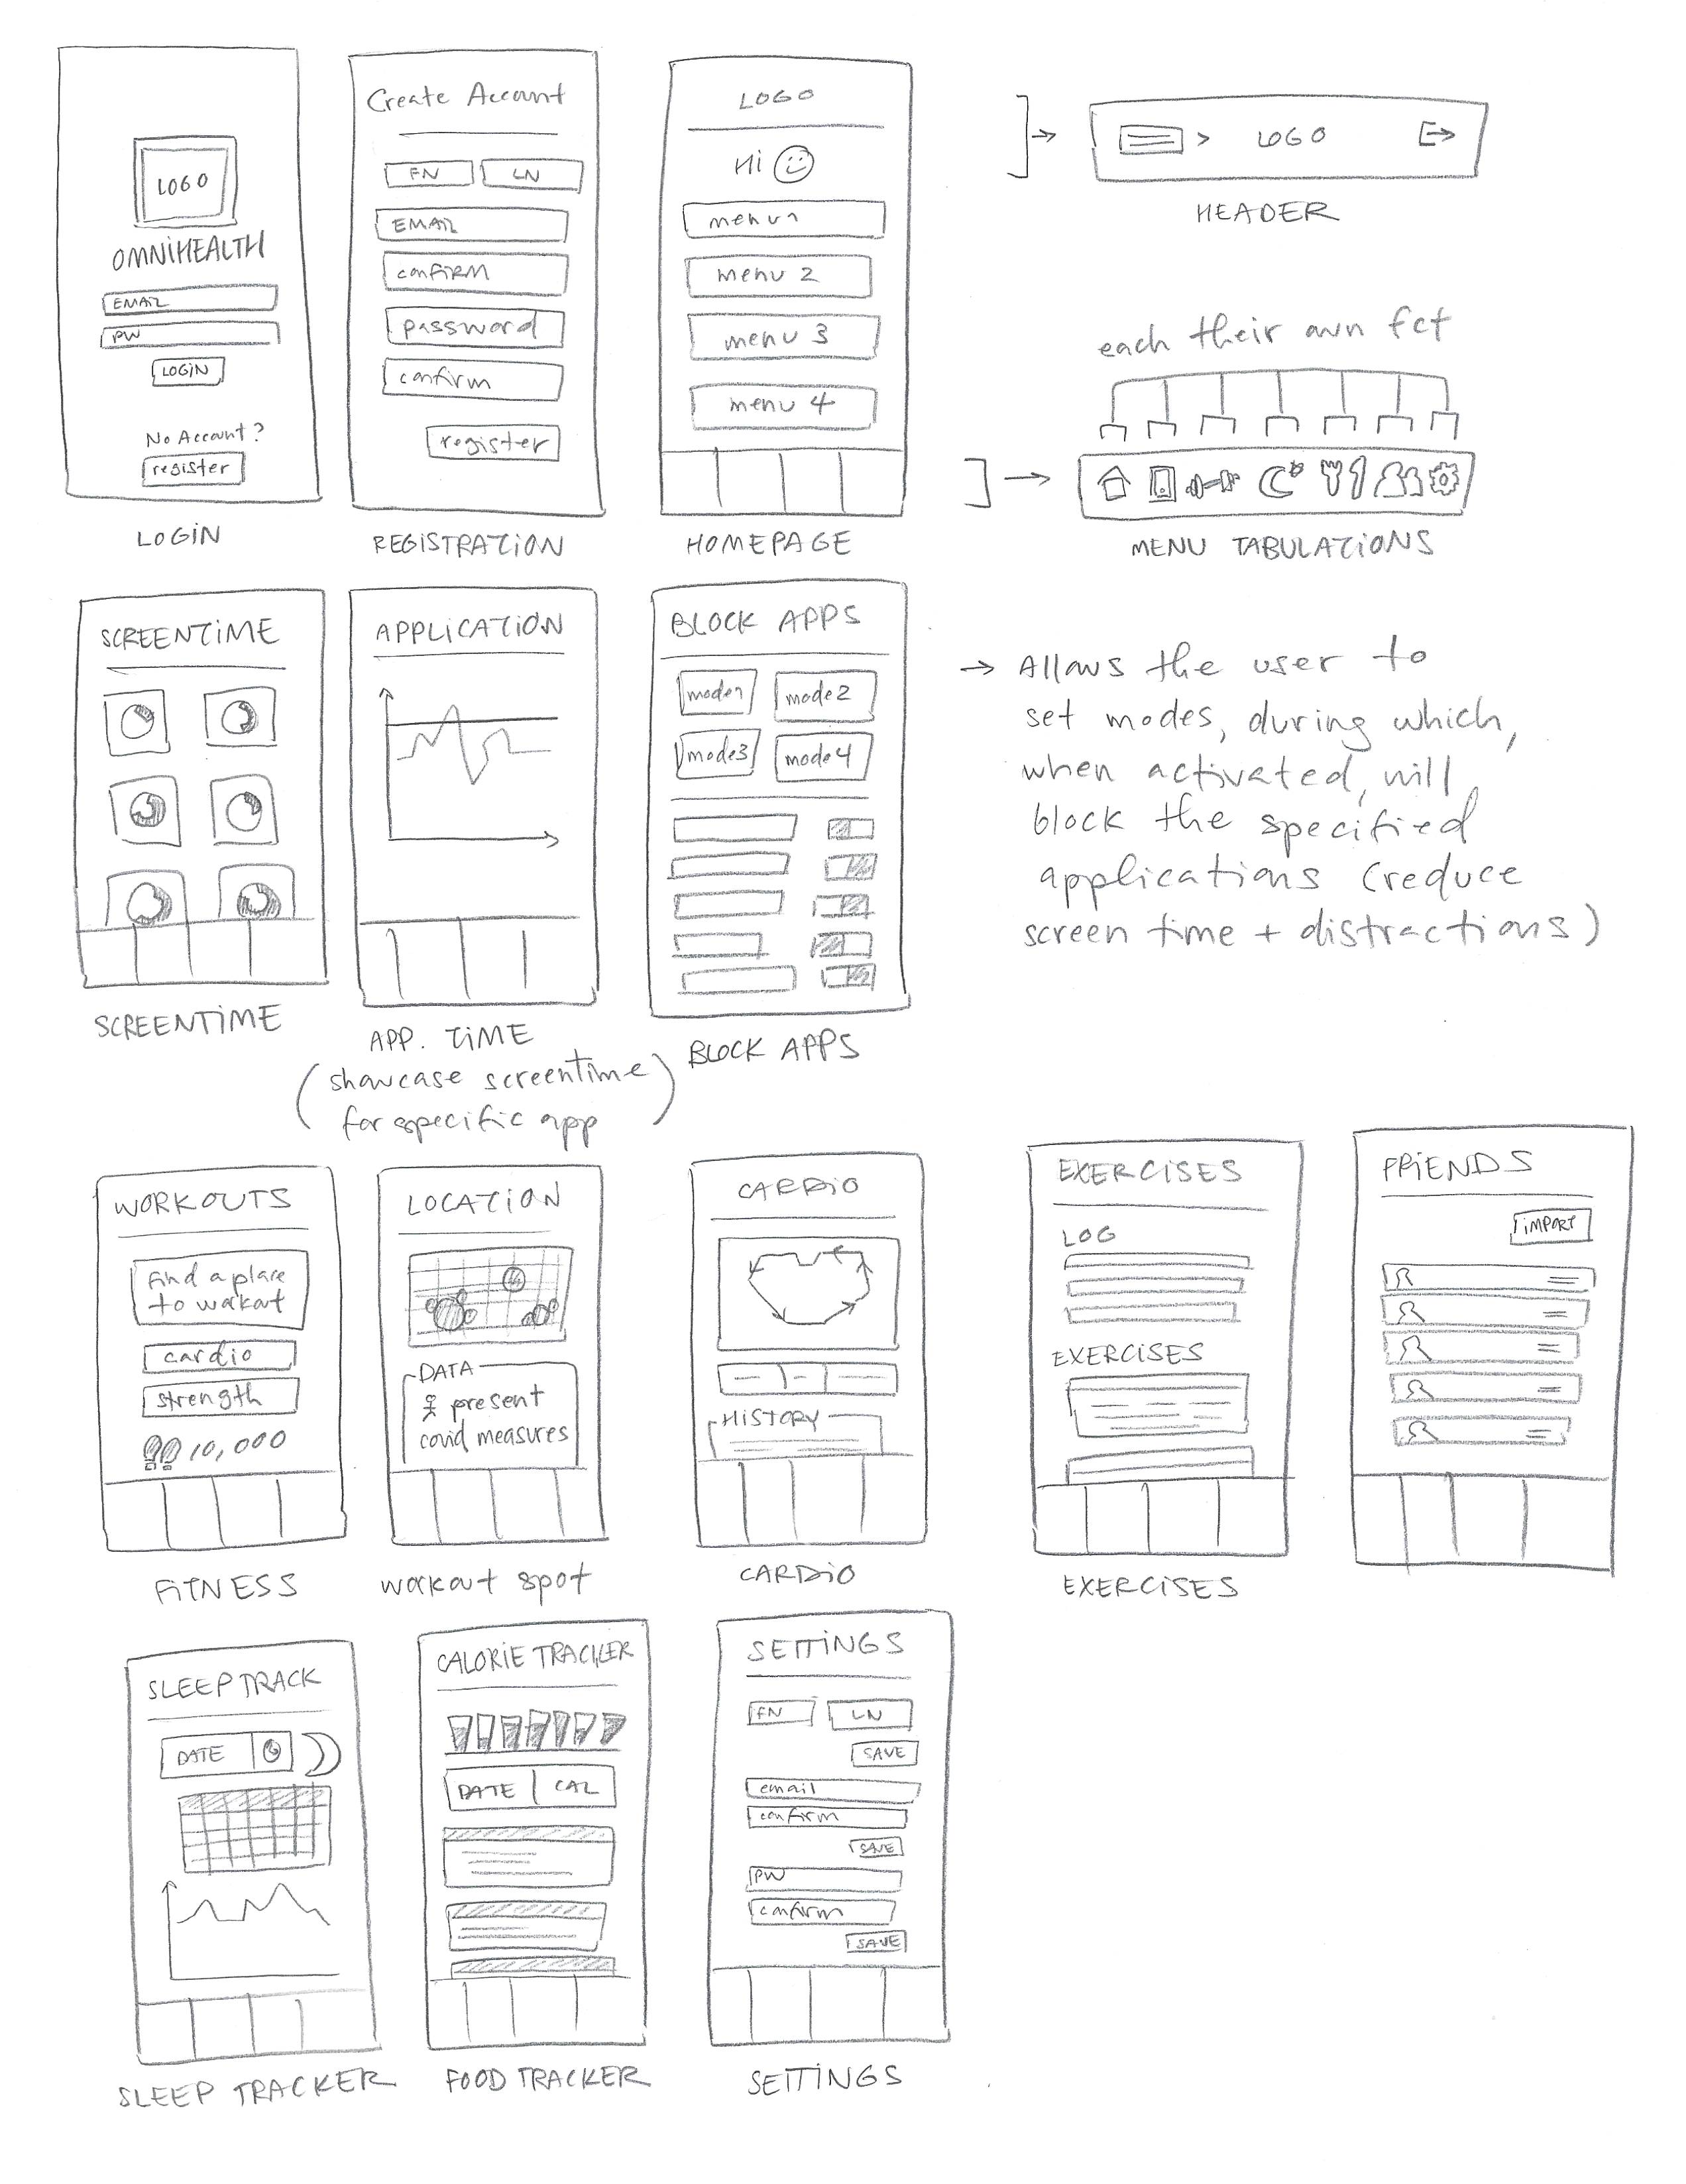 LOGO
OMNiHEALTH
EMAIL
PW
LOGiN
No Account?
register
LOGiN
Create Account
FN
LN
EMAIL
confiRM
password
confirm
register
REGISTRATiON
LOGO
Hi
menu 1
menu 2
menu 3
menu 4
HOMEPAGE
> LOGO
HEADER
each their own fct
MENU TABULATiONS
SCREENTiME
SCREENTiME
APPLiCATiON
APP. TiME
(showcase screentime
for specific app)
BLOCK APPS
mode1
mode2
mode3
mode4
BLOCK APPS
→ Allows the user to
set modes, during which,
when activated, will
block the specified
applications (reduce
screen time + distractions)
WORKOUTS
Find a place
to workout
cardio
strength
10,000
FiTNESS
LOCATiON
DATA
present
covid measures
workout spot
CARDiO
HiSTORY
CARDiO
EXERCiSES
LOG
EXERCISES
EXERCiSES
FRiENDS
iMPORT
SLEEP TRACK
DATE
SLEEP TRACKER
CALORiE TRACKER
DATE
CAL
FOOD TRACKER
SETTiNGS
FN
LN
SAVE
email
confirm
SAVE
PW
confirm
SAVE
SETTiNGS